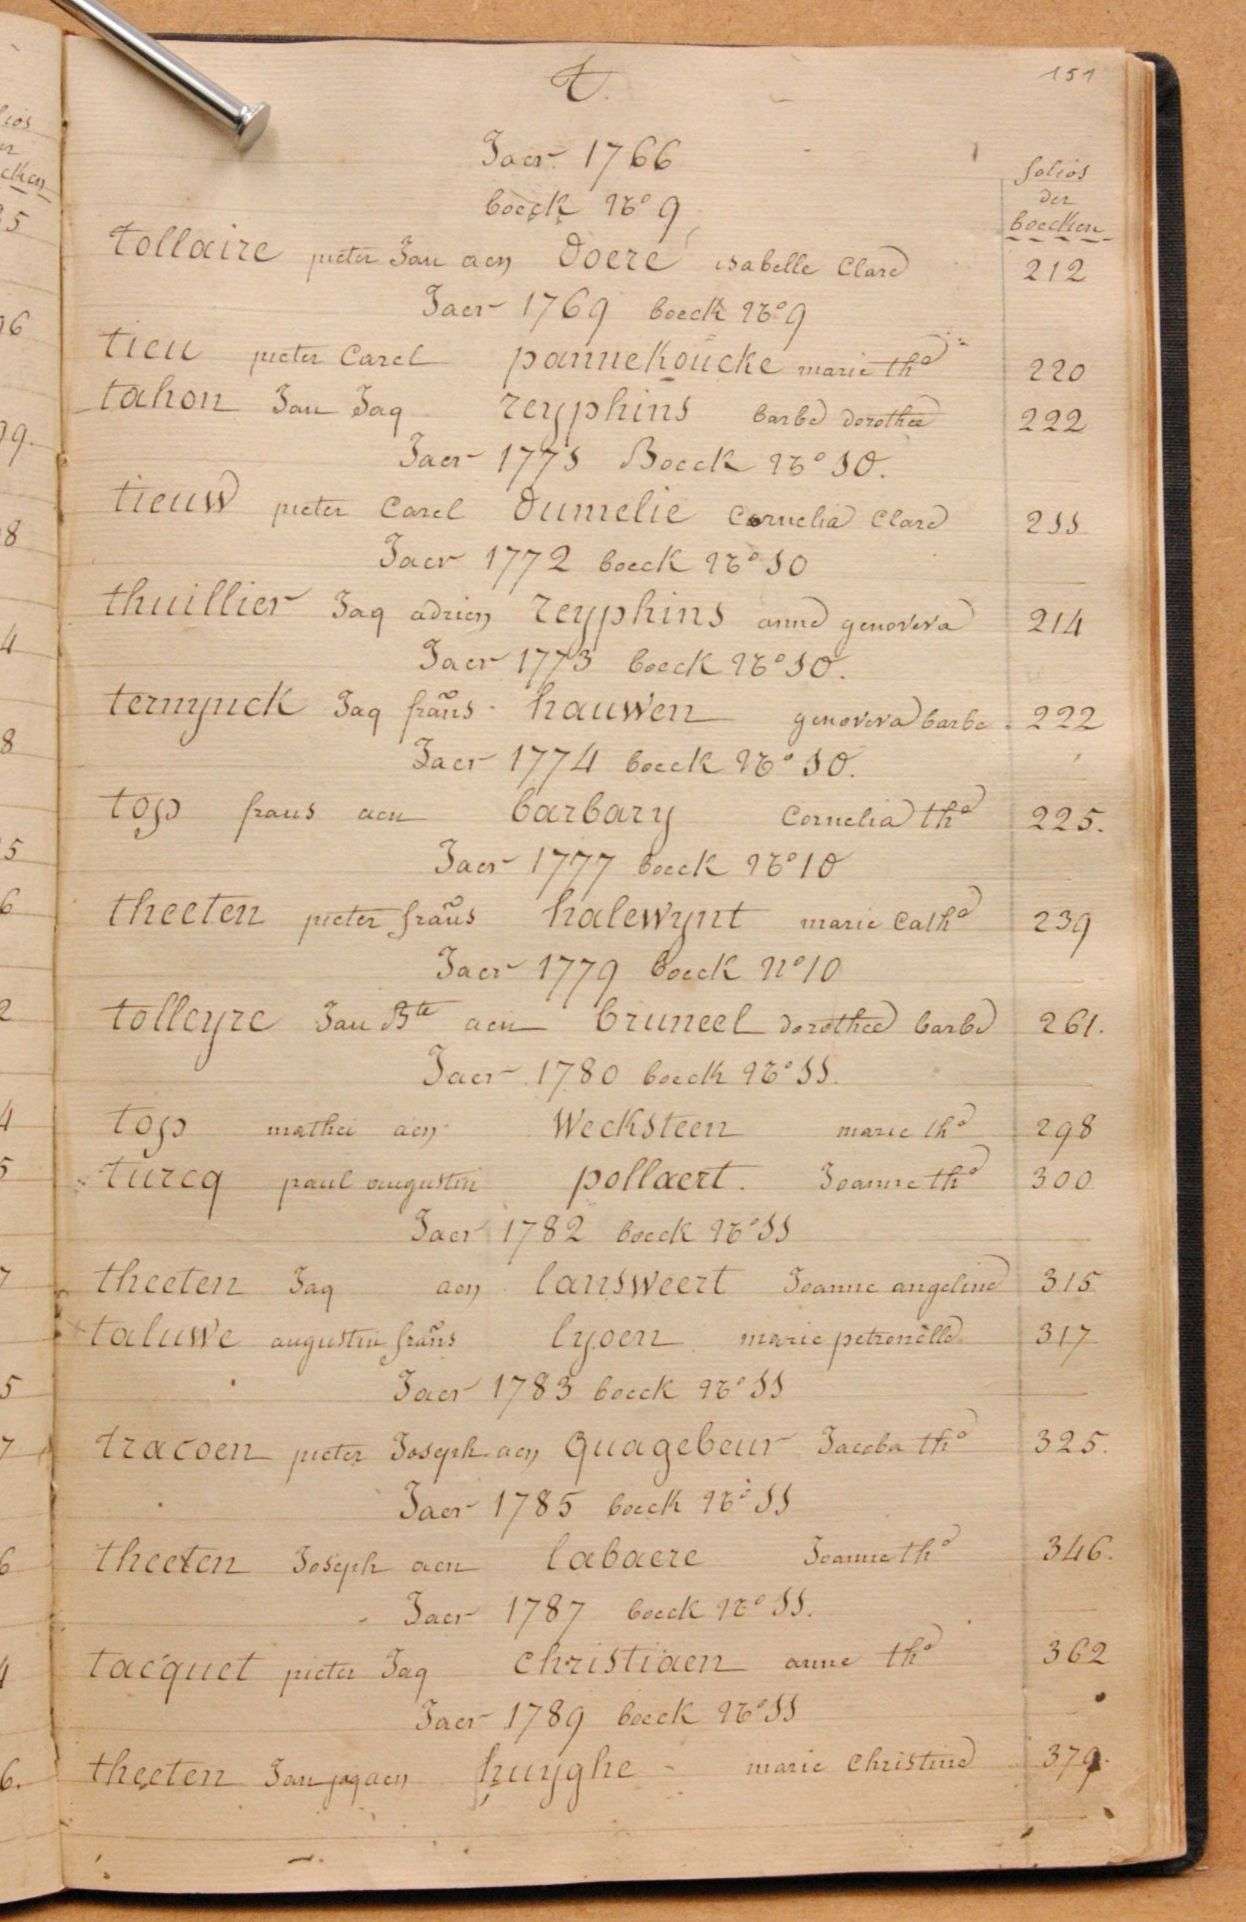 t.
151
Jaer 1766
boeck No 9
folios
der
boecken
tollaire pieter Jan aen doere isabelle Clare 212
Jaer 1769 boeck No 9
tieu pieter Carel pannekoucke marie tha 220
tahon Jan Jaq reyphins barbe dorothee 222
Jaer 1771 Boeck No 10.
tieuw pieter Carel dumelie Cornelia Clare 211
Jaer 1772 boeck No 10
thuillier Jaq adrien reyphins anne genoveva 214
Jaer 1773 boeck No 10.
ternynck Jaq frans hauwen genoveva barbe 222
Jaer 1774 boeck No 10.
top frans aen barbary Cornelia tha 225.
Jaer 1777 boeck No 10
theeten pieter frans halewynt marie Catha 239
Jaer 1779 boeck No 10
tolleyre Jan Bte aen bruneel dorothee barbe 261.
Jaer 1780 boeck No 11.
top mathei aen Wecksteen marie tha 298
turcq paul augustin pollaert. Joanne tha 300
Jaer 1782 boeck No 11
theeten Jaq aen lansweert Joanne angeline 315
taluwe augustin frans lyoen marie petronelle 317
Jaer 1783 boeck No 11
tracoen pieter Joseph aen quagebeur Jacoba tha 325.
Jaer 1785 boeck No 11
theeten Joseph aen labaere Joanne tha 346.
Jaer 1787 boeck No 11.
tacquet pieter Jaq Christiaen anne tha 362
Jaer 1789 boeck No 11
theeten Jan jaq aen huyghe marie Christine 379.